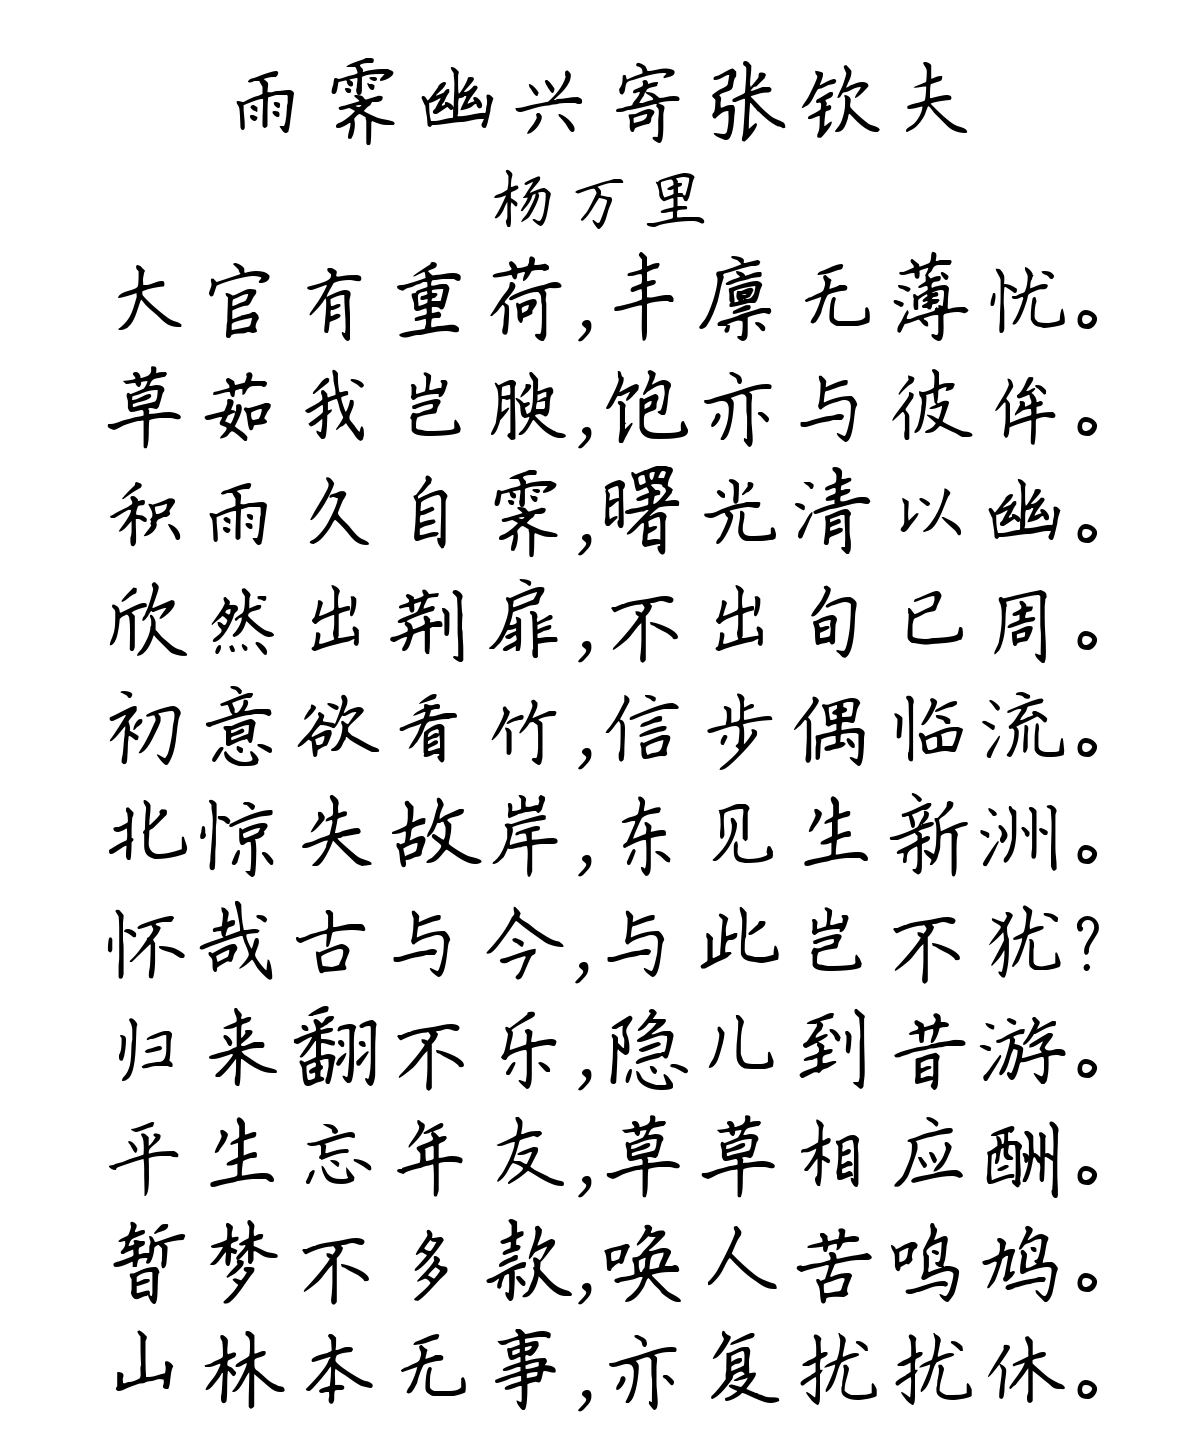 雨霁幽兴寄张钦夫
杨万里
大官有重荷,丰廪无薄忧。
草茹我岂腴,饱亦与彼侔。
积雨久自霁,曙光清以幽。
欣然出荆扉,不出旬已周。
初意欲看竹,信步偶临流。
北惊失故岸,东见生新洲。
怀哉古与今,与此岂不犹?
归来翻不乐,隐儿到昔游。
平生忘年友,草草相应酬。
暂梦不多款,唤人苦鸣鸠。
山林本无事,亦复扰扰休。